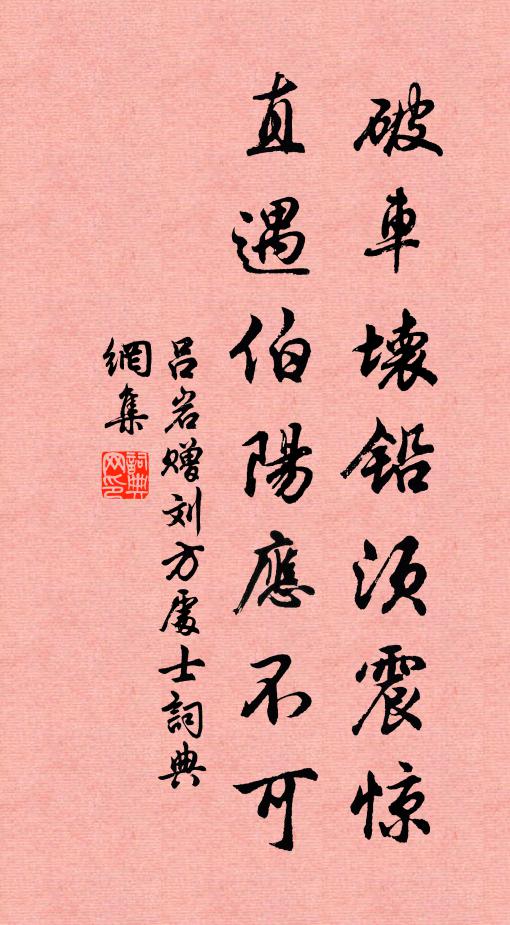 破車壞鉛须震惊
直遇伯陽應不可
吕岩赠刘方處士詞典
網集
詞典網印